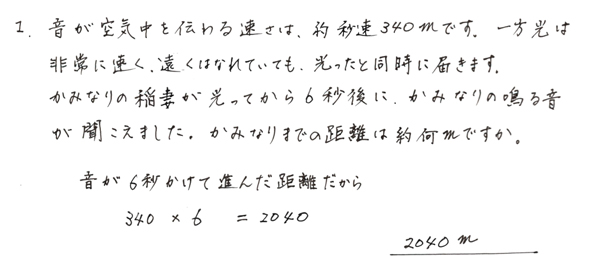 1. 音が空気中を伝わる速さは、約秒速340mです。一方光は
非常に速く、遠くはなれていても、光ったと同時に届きます。
かみなりの稲妻が光ってから6秒後に、かみなりの鳴る音
が聞こえました。かみなりまでの距離は約何mですか。
音が6秒かけて進んだ距離だから
340 × 6 = 2040
2040 m